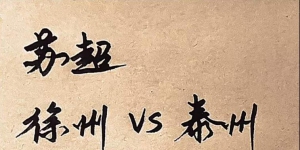 苏超
徐州 VS 泰州